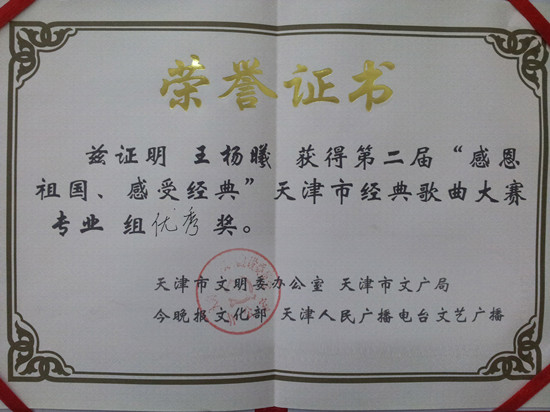 荣誉证书
兹证明 王杨曦 获得第二届“感恩
祖国、感受经典”天津市经典歌曲大赛
专业 组优秀奖。
天津市文明委办公室 天津市文广局
今晚报文化部 天津人民广播电台文艺广播